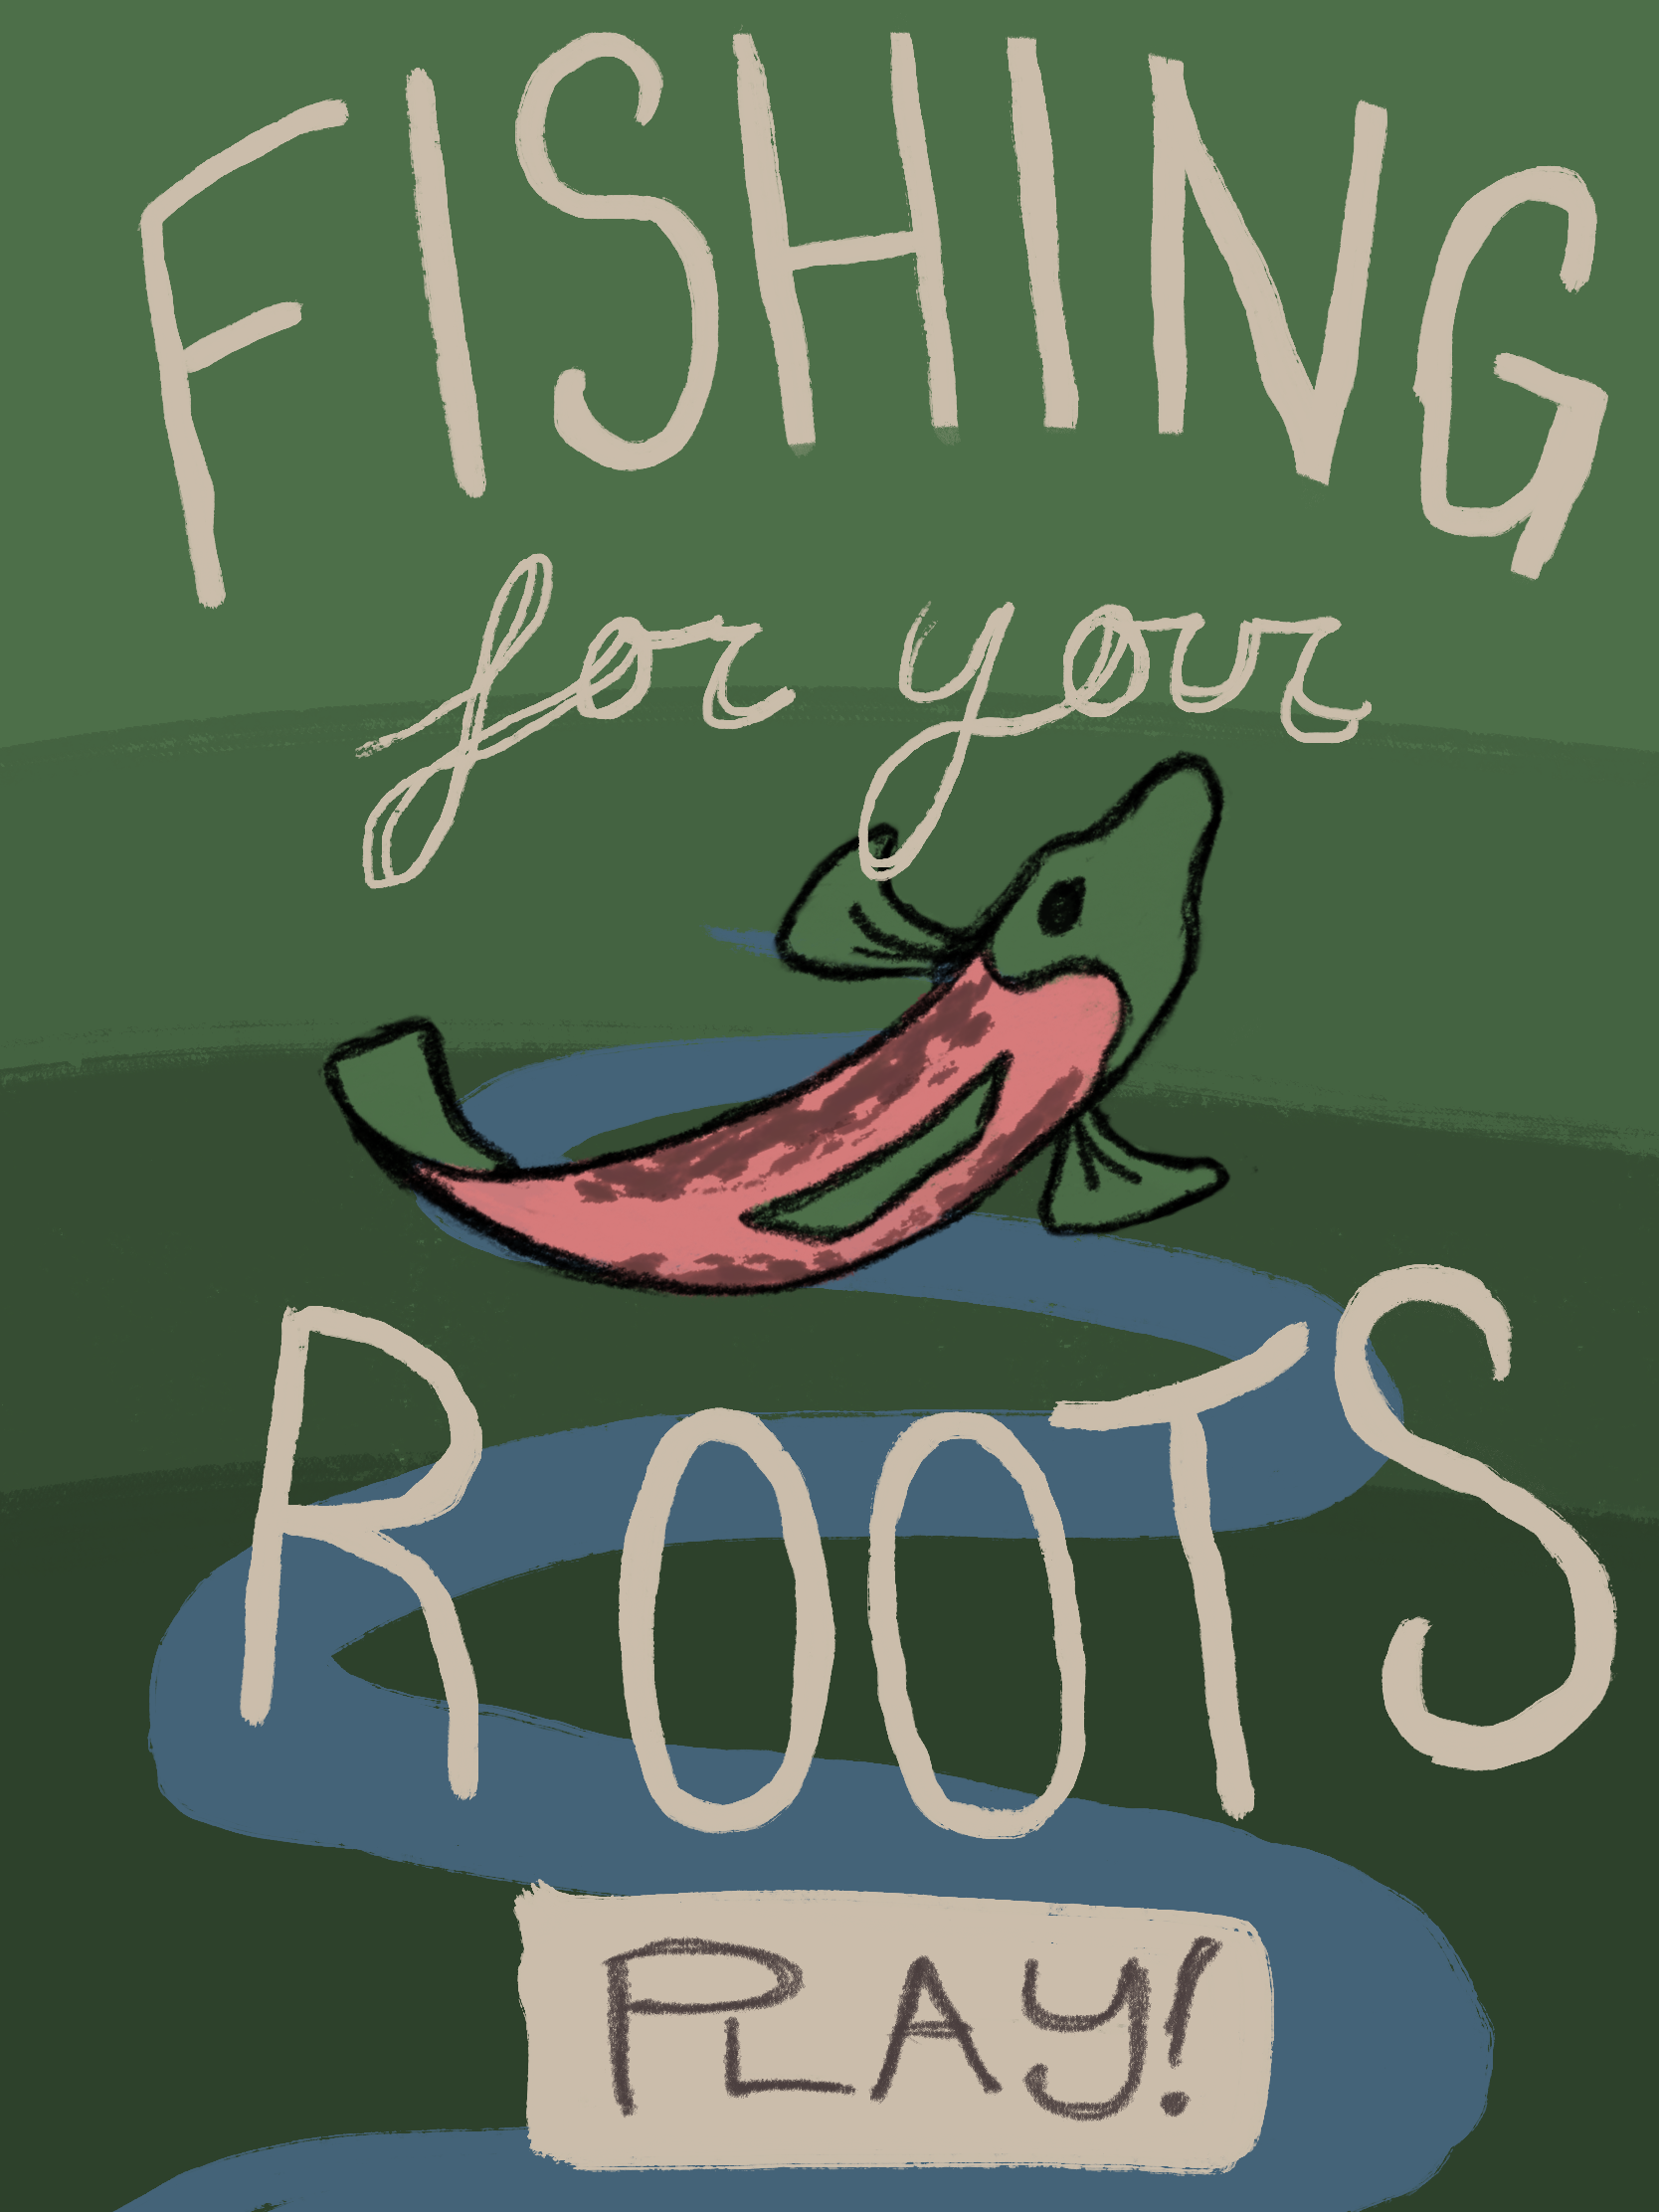 FISHING
for your
ROOTS
PLAY!